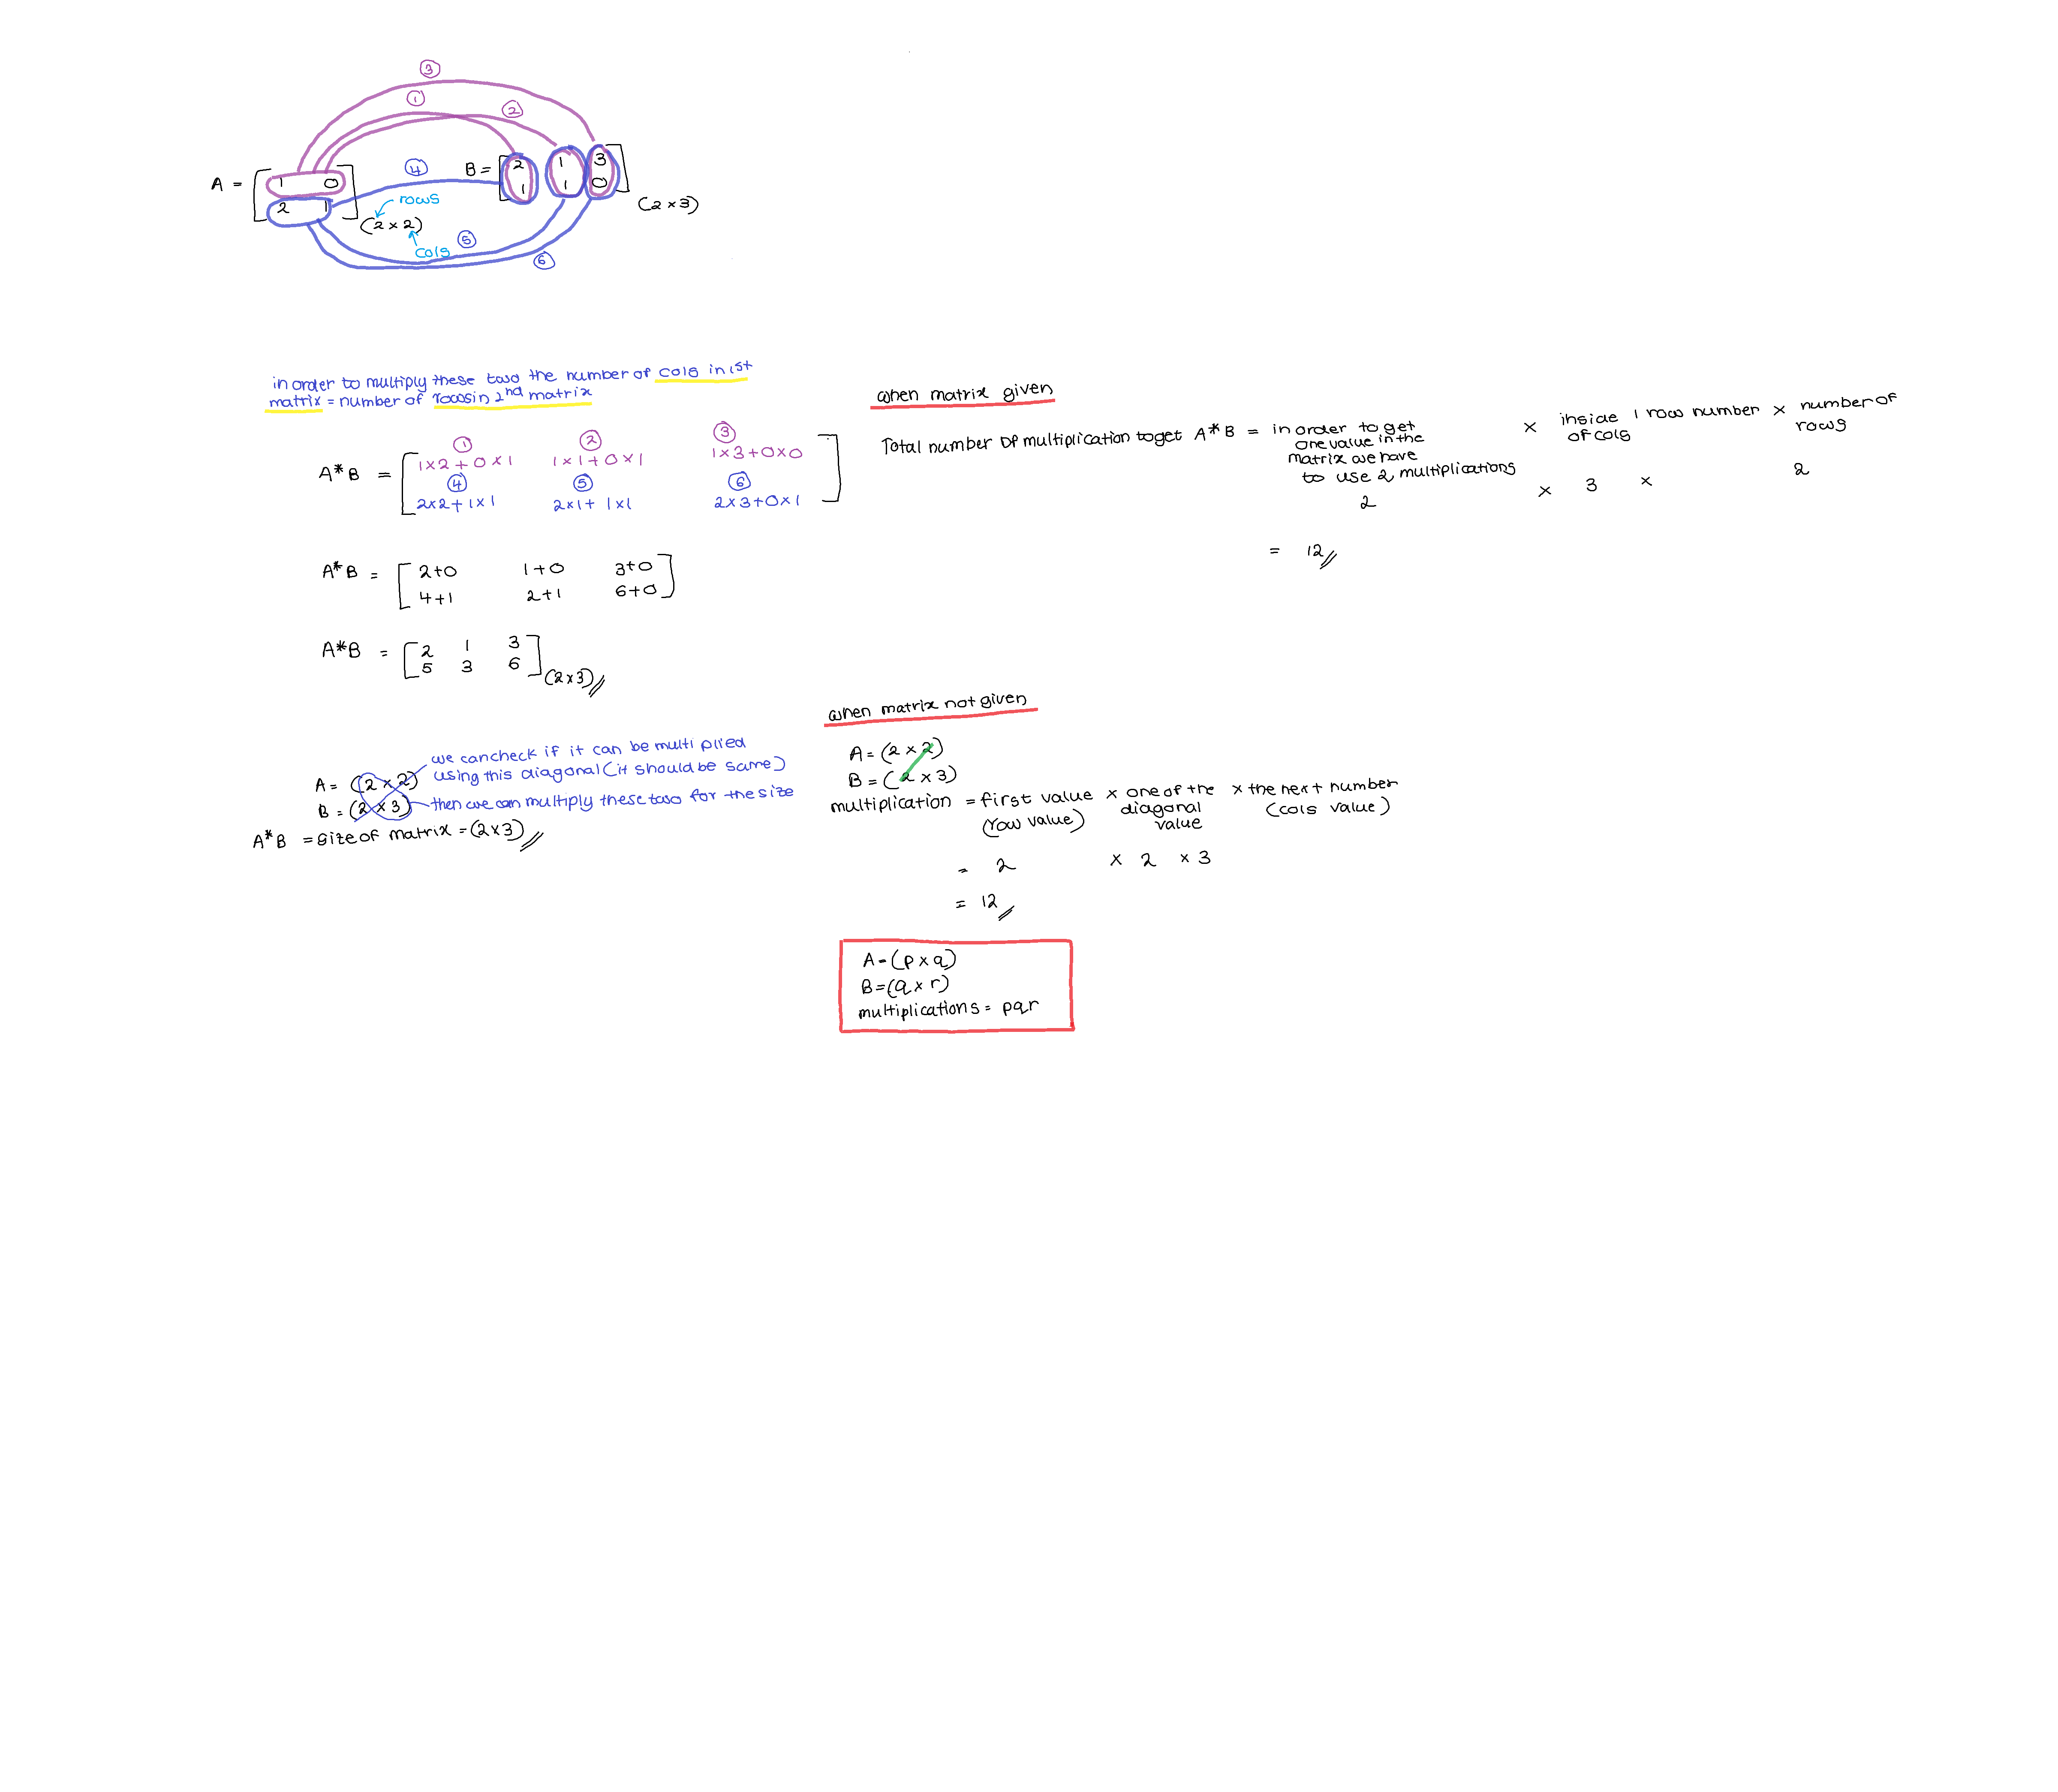 ③
①
②
A = [ 1 0
2 1 ] (2 × 2)
④
rows
cols
⑤
⑥
B = [ 2 1 3
1 1 0 ] (2 × 3)
in order to multiply these two the number of cols in 1st
matrix = number of rows in 2nd matrix
① ② ③
A*B = [ 1×2+0×1 1×1+0×1 1×3+0×0
④ ⑤ ⑥
2×2+1×1 2×1+1×1 2×3+0×1 ]
A*B = [ 2+0 1+0 3+0
4+1 2+1 6+0 ]
A*B = [ 2 1 3
5 3 6 ] (2×3)//
we can check if it can be multiplied
using this diagonal (it should be same)
A = (2 × 2)
B = (2 × 3) then we can multiply these two for the size
A*B = size of matrix = (2×3)//
when matrix given
Total number of multiplication to get A*B = in order to get
one value in the
matrix we have
to use 2 multiplications
× inside 1 row number
of cols
× number of
rows
2 × 3 × 2
= 12//
when matrix not given
A = (2 × 2)
B = (2 × 3)
multiplication = first value × one of the × the next number
(row value) diagonal (cols value)
value
= 2 × 2 × 3
= 12//
A = (p × q)
B = (q × r)
multiplications = pqr